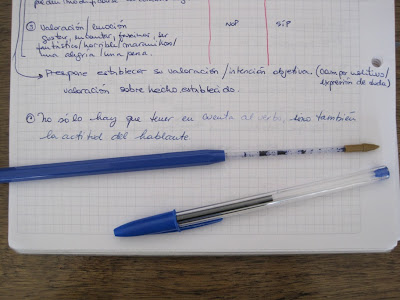 ③ Valoración/emoción NOP SIP
gustar, encantar, fascinar, ser
fantástico/horrible/maravilloso/
una alegría/una pena.
Presupone establecer su valoración/intención objetiva. (campo volitivo/
expresión de duda)
valoración sobre hecho establecido.
no sólo hay que tener en cuenta al verbo, sino también
la actitud del hablante.